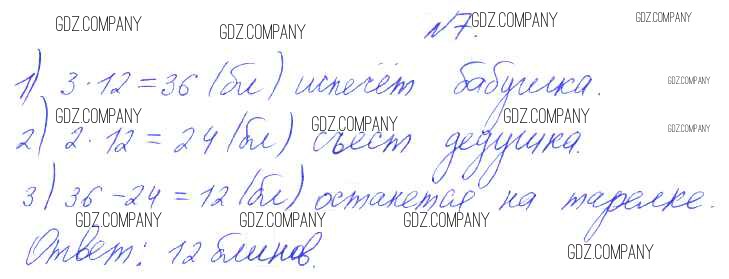 GDZ.COMPANY GDZ.COMPANY №7. GDZ.COMPANY GDZ.COMPANY
1) 3·12=36 (бл) испечёт бабушка. GDZ.COMPANY
GDZ.COMPANY GDZ.COMPANY GDZ.COMPANY GDZ.COMPANY
2) 2·12=24 (бл) съест дедушка.
3) 36-24=12 (бл) останется на тарелке.
GDZ.COMPANY GDZ.COMPANY GDZ.COMPANY
Ответ: 12 блинов. GDZ.COMPANY